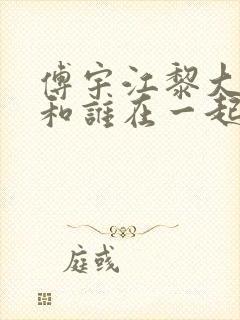 傅宇江黎大
和誰在一起
庭彧